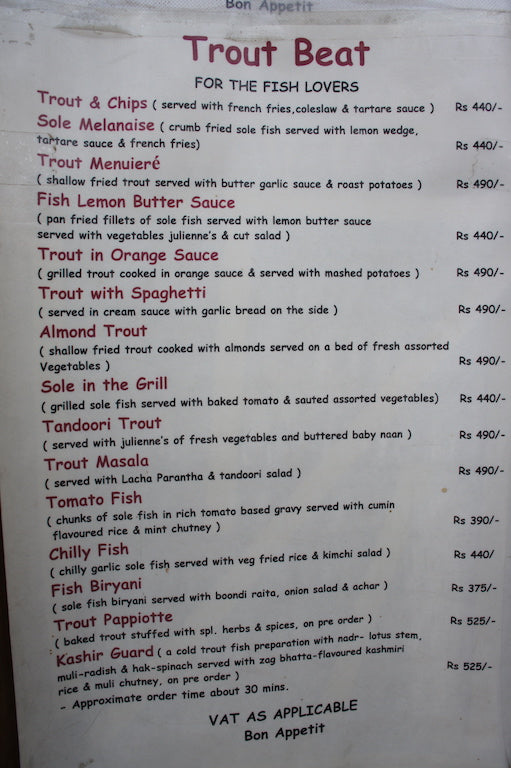 Bon Appetit
Trout Beat
FOR THE FISH LOVERS
Trout & Chips ( served with french fries,coleslaw & tartare sauce ) Rs 440/-
Sole Melanaise ( crumb fried sole fish served with lemon wedge,
tartare sauce & french fries) Rs 440/-
Trout Menuieré
( shallow fried trout served with butter garlic sauce & roast potatoes ) Rs 490/-
Fish Lemon Butter Sauce
( pan fried fillets of sole fish served with lemon butter sauce
served with vegetables julienne's & cut salad ) Rs 440/-
Trout in Orange Sauce
( grilled trout cooked in orange sauce & served with mashed potatoes ) Rs 490/-
Trout with Spaghetti
( served in cream sauce with garlic bread on the side ) Rs 490/-
Almond Trout
( shallow fried trout cooked with almonds served on a bed of fresh assorted
Vegetables ) Rs 490/-
Sole in the Grill
( grilled sole fish served with baked tomato & sauted assorted vegetables) Rs 440/-
Tandoori Trout
( served with julienne's of fresh vegetables and buttered baby naan ) Rs 490/-
Trout Masala
( served with Lacha Parantha & tandoori salad ) Rs 490/-
Tomato Fish
( chunks of sole fish in rich tomato based gravy served with cumin
flavoured rice & mint chutney ) Rs 390/-
Chilly Fish
( chilly garlic sole fish served with veg fried rice & kimchi salad ) Rs 440/
Fish Biryani
( sole fish biryani served with boondi raita, onion salad & achar ) Rs 375/-
Trout Pappiotte
( baked trout stuffed with spl. herbs & spices, on pre order ) Rs 525/-
Kashir Guard ( a cold trout fish preparation with nadr- lotus stem,
muli-radish & hak-spinach served with zag bhatta-flavoured kashmiri
rice & muli chutney, on pre order ) Rs 525/-
- Approximate order time about 30 mins.
VAT AS APPLICABLE
Bon Appetit